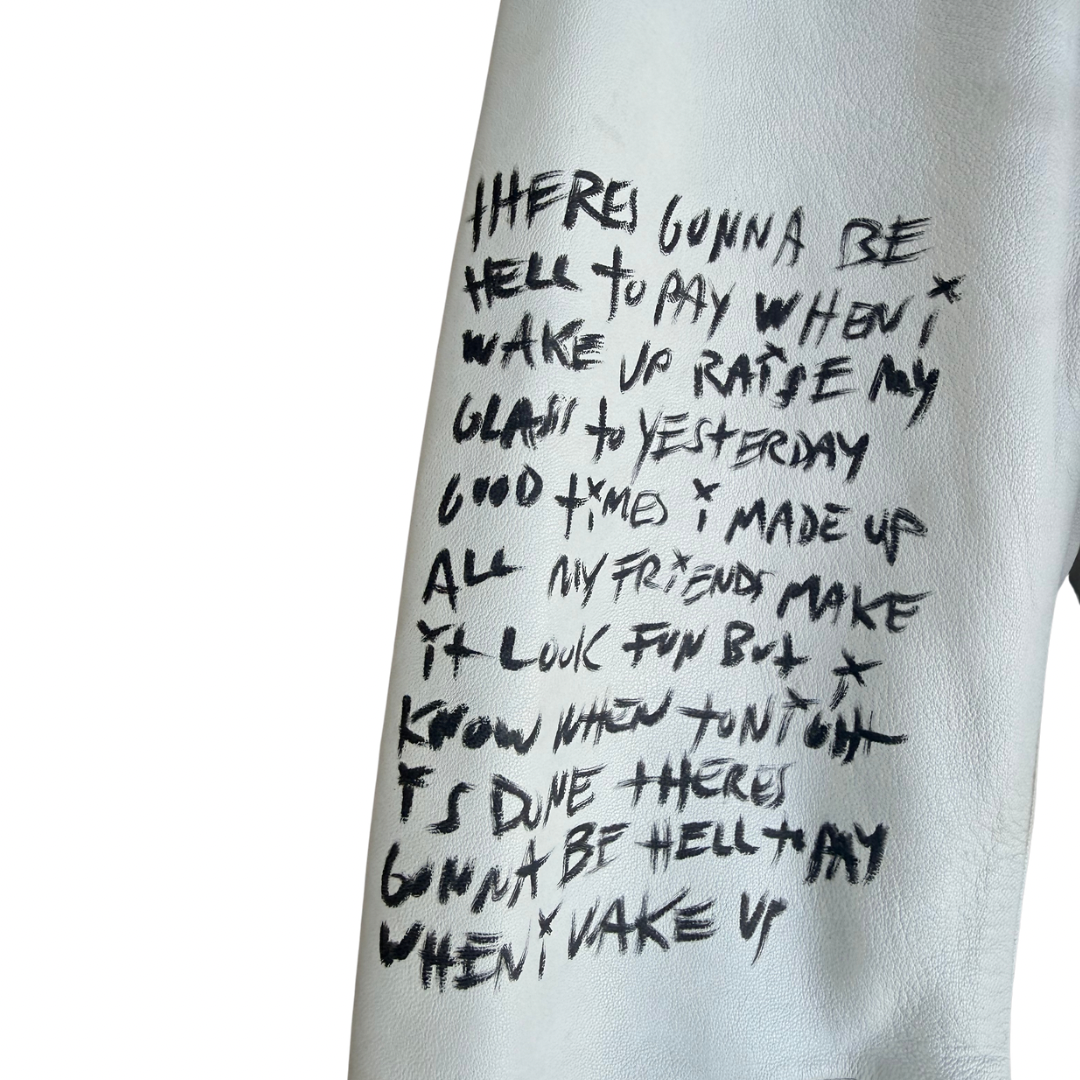 THERES GONNA BE
HELL to PAY WHEN i
WAKE UP RAiSE MY
GLASS to YEStERDAY
GOOD tiMES i MADE UP
ALL MY FRiENDS MAKE
it LOOK FUN BUt i
KNOW WHEN tONiGHt
iTS DONE tHERES
GONNA BE HELL to PAY
WHEN i WAKE UP